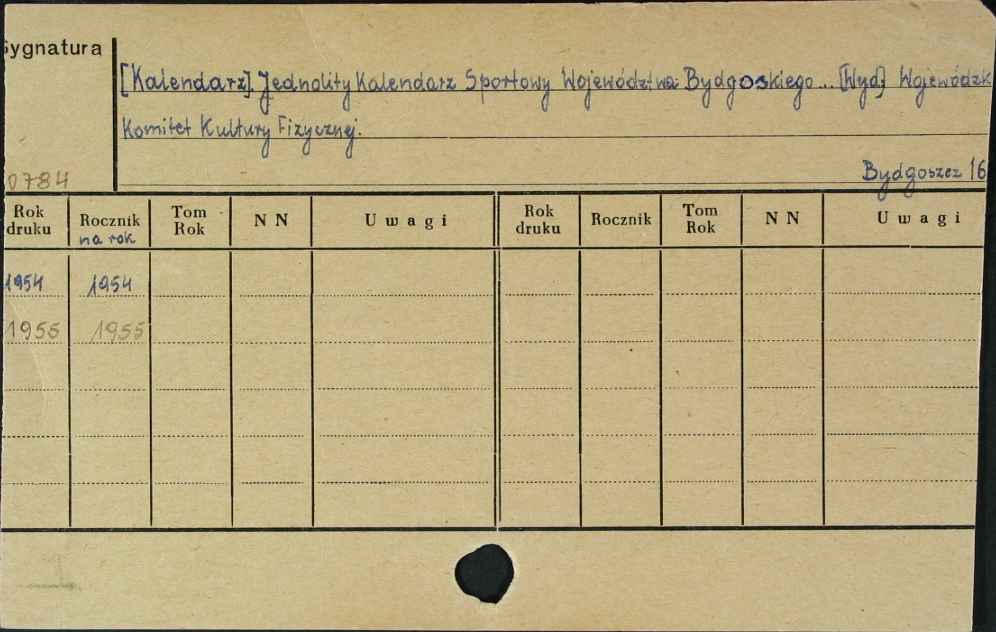 Sygnatura
[Kalendarz]. Jednolity Kalendarz Sportowy Województwa Bydgoskiego... [Wyd] Wojewódzk
Komitet Kultury Fizycznej.
0784
Bydgoszcz 16
Rok druku Rocznik na rok Tom Rok NN Uwagi Rok druku Rocznik Tom Rok NN Uwagi
1954 1954
1955 1955